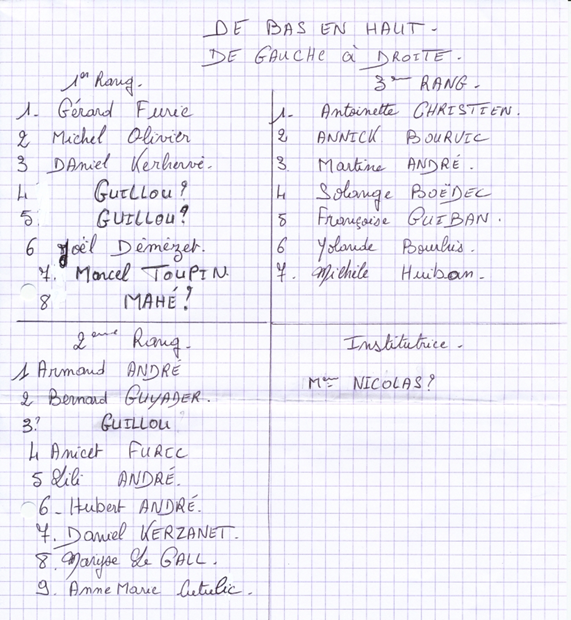 DE BAS EN HAUT -
DE GAUCHE à DROITE.
1er Rang.
1- Gérard Furic
2 Michel Olivier
3 DAniel Kerhervé.
4 GUILLOU?
5. GUILLOU?
6 Joël Démézet.
7. Marcel TOUPIN
8 MAHÉ?
3eme RANG.
1- Antoinette CHRISTIEN.
2 ANNICK BOURVIC
3 Martine ANDRÉ.
4 Solange BOËDEC
5 Françoise GUIBAN.
6 Yolande
7. Michèle Huiban.
2eme Rang.
1 Armand ANDRÉ
2 Bernard GUYADER.
3? GUILLOU
4 Anicet FURIC
5 Lili ANDRÉ.
6- Hubert ANDRÉ.
7. Daniel KERZANET.
8. Maryse Le GALL.
9. Anne Marie
Institutrice -
Mme NICOLAS?